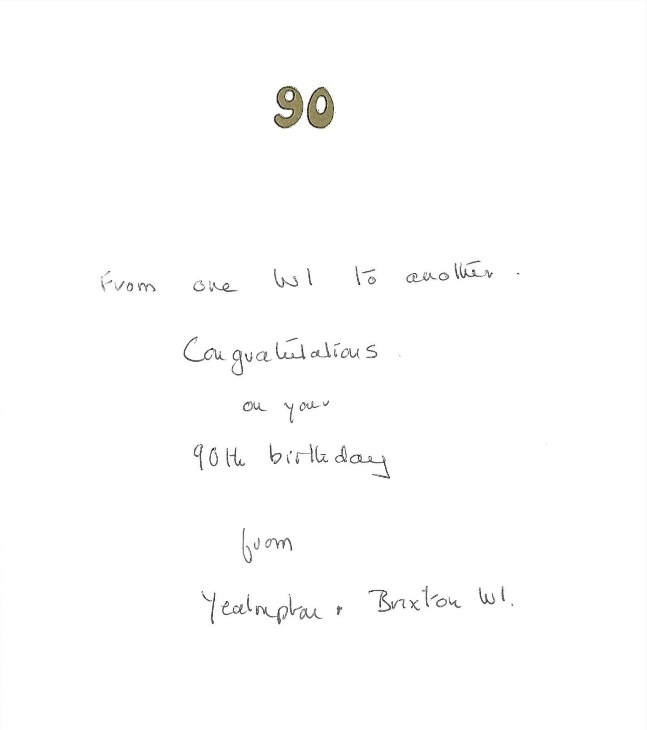 90
From one WI to another.
Congratulations
on your
90th birthday
from
Yealmpton & Brixton WI.